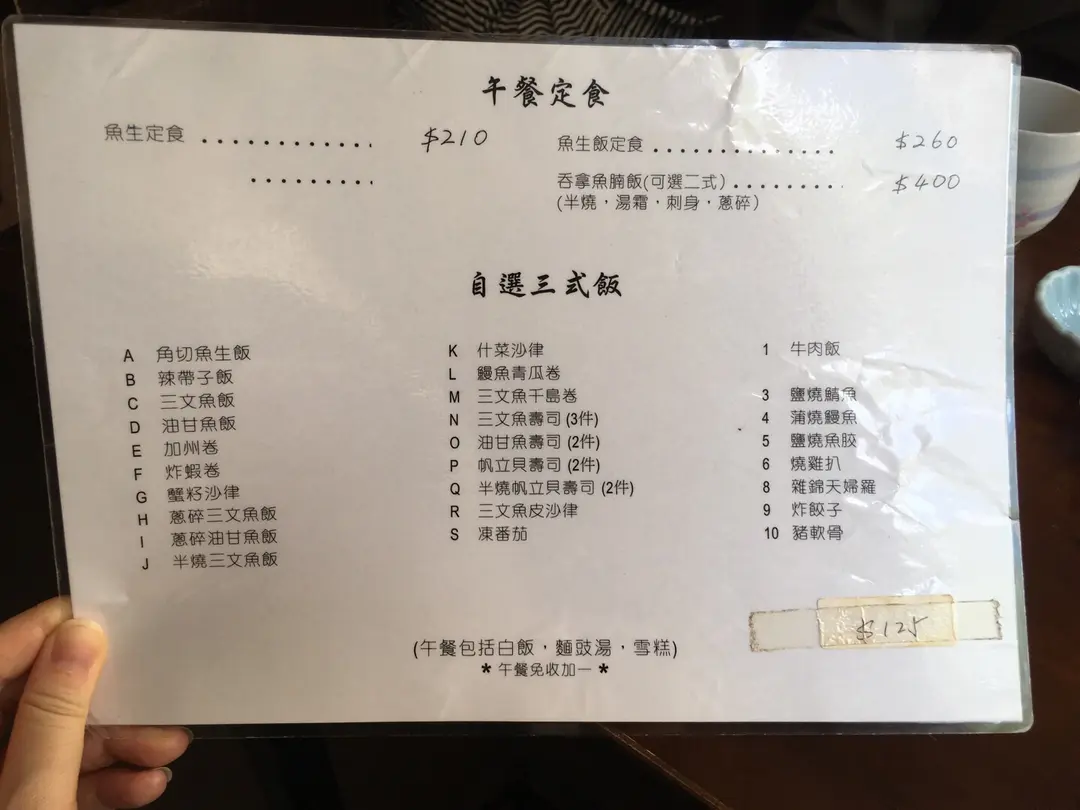 午餐定食
魚生定食 ............ $210
............
魚生飯定食 ............ $260
吞拿魚腩飯(可選二式) ............ $400
(半燒，湯霜，刺身，蔥碎)
自選三式飯
A 角切魚生飯
B 辣帶子飯
C 三文魚飯
D 油甘魚飯
E 加州卷
F 炸蝦卷
G 蟹籽沙律
H 蔥碎三文魚飯
I 蔥碎油甘魚飯
J 半燒三文魚飯
K 什菜沙律
L 鰻魚青瓜卷
M 三文魚千島卷
N 三文魚壽司 (3件)
O 油甘魚壽司 (2件)
P 帆立貝壽司 (2件)
Q 半燒帆立貝壽司 (2件)
R 三文魚皮沙律
S 凍番茄
1 牛肉飯
3 鹽燒鯖魚
4 蒲燒鰻魚
5 鹽燒魚胶
6 燒雞扒
8 雜錦天婦羅
9 炸餃子
10 豬軟骨
$125
(午餐包括白飯，麵豉湯，雪糕)
* 午餐免收加一 *